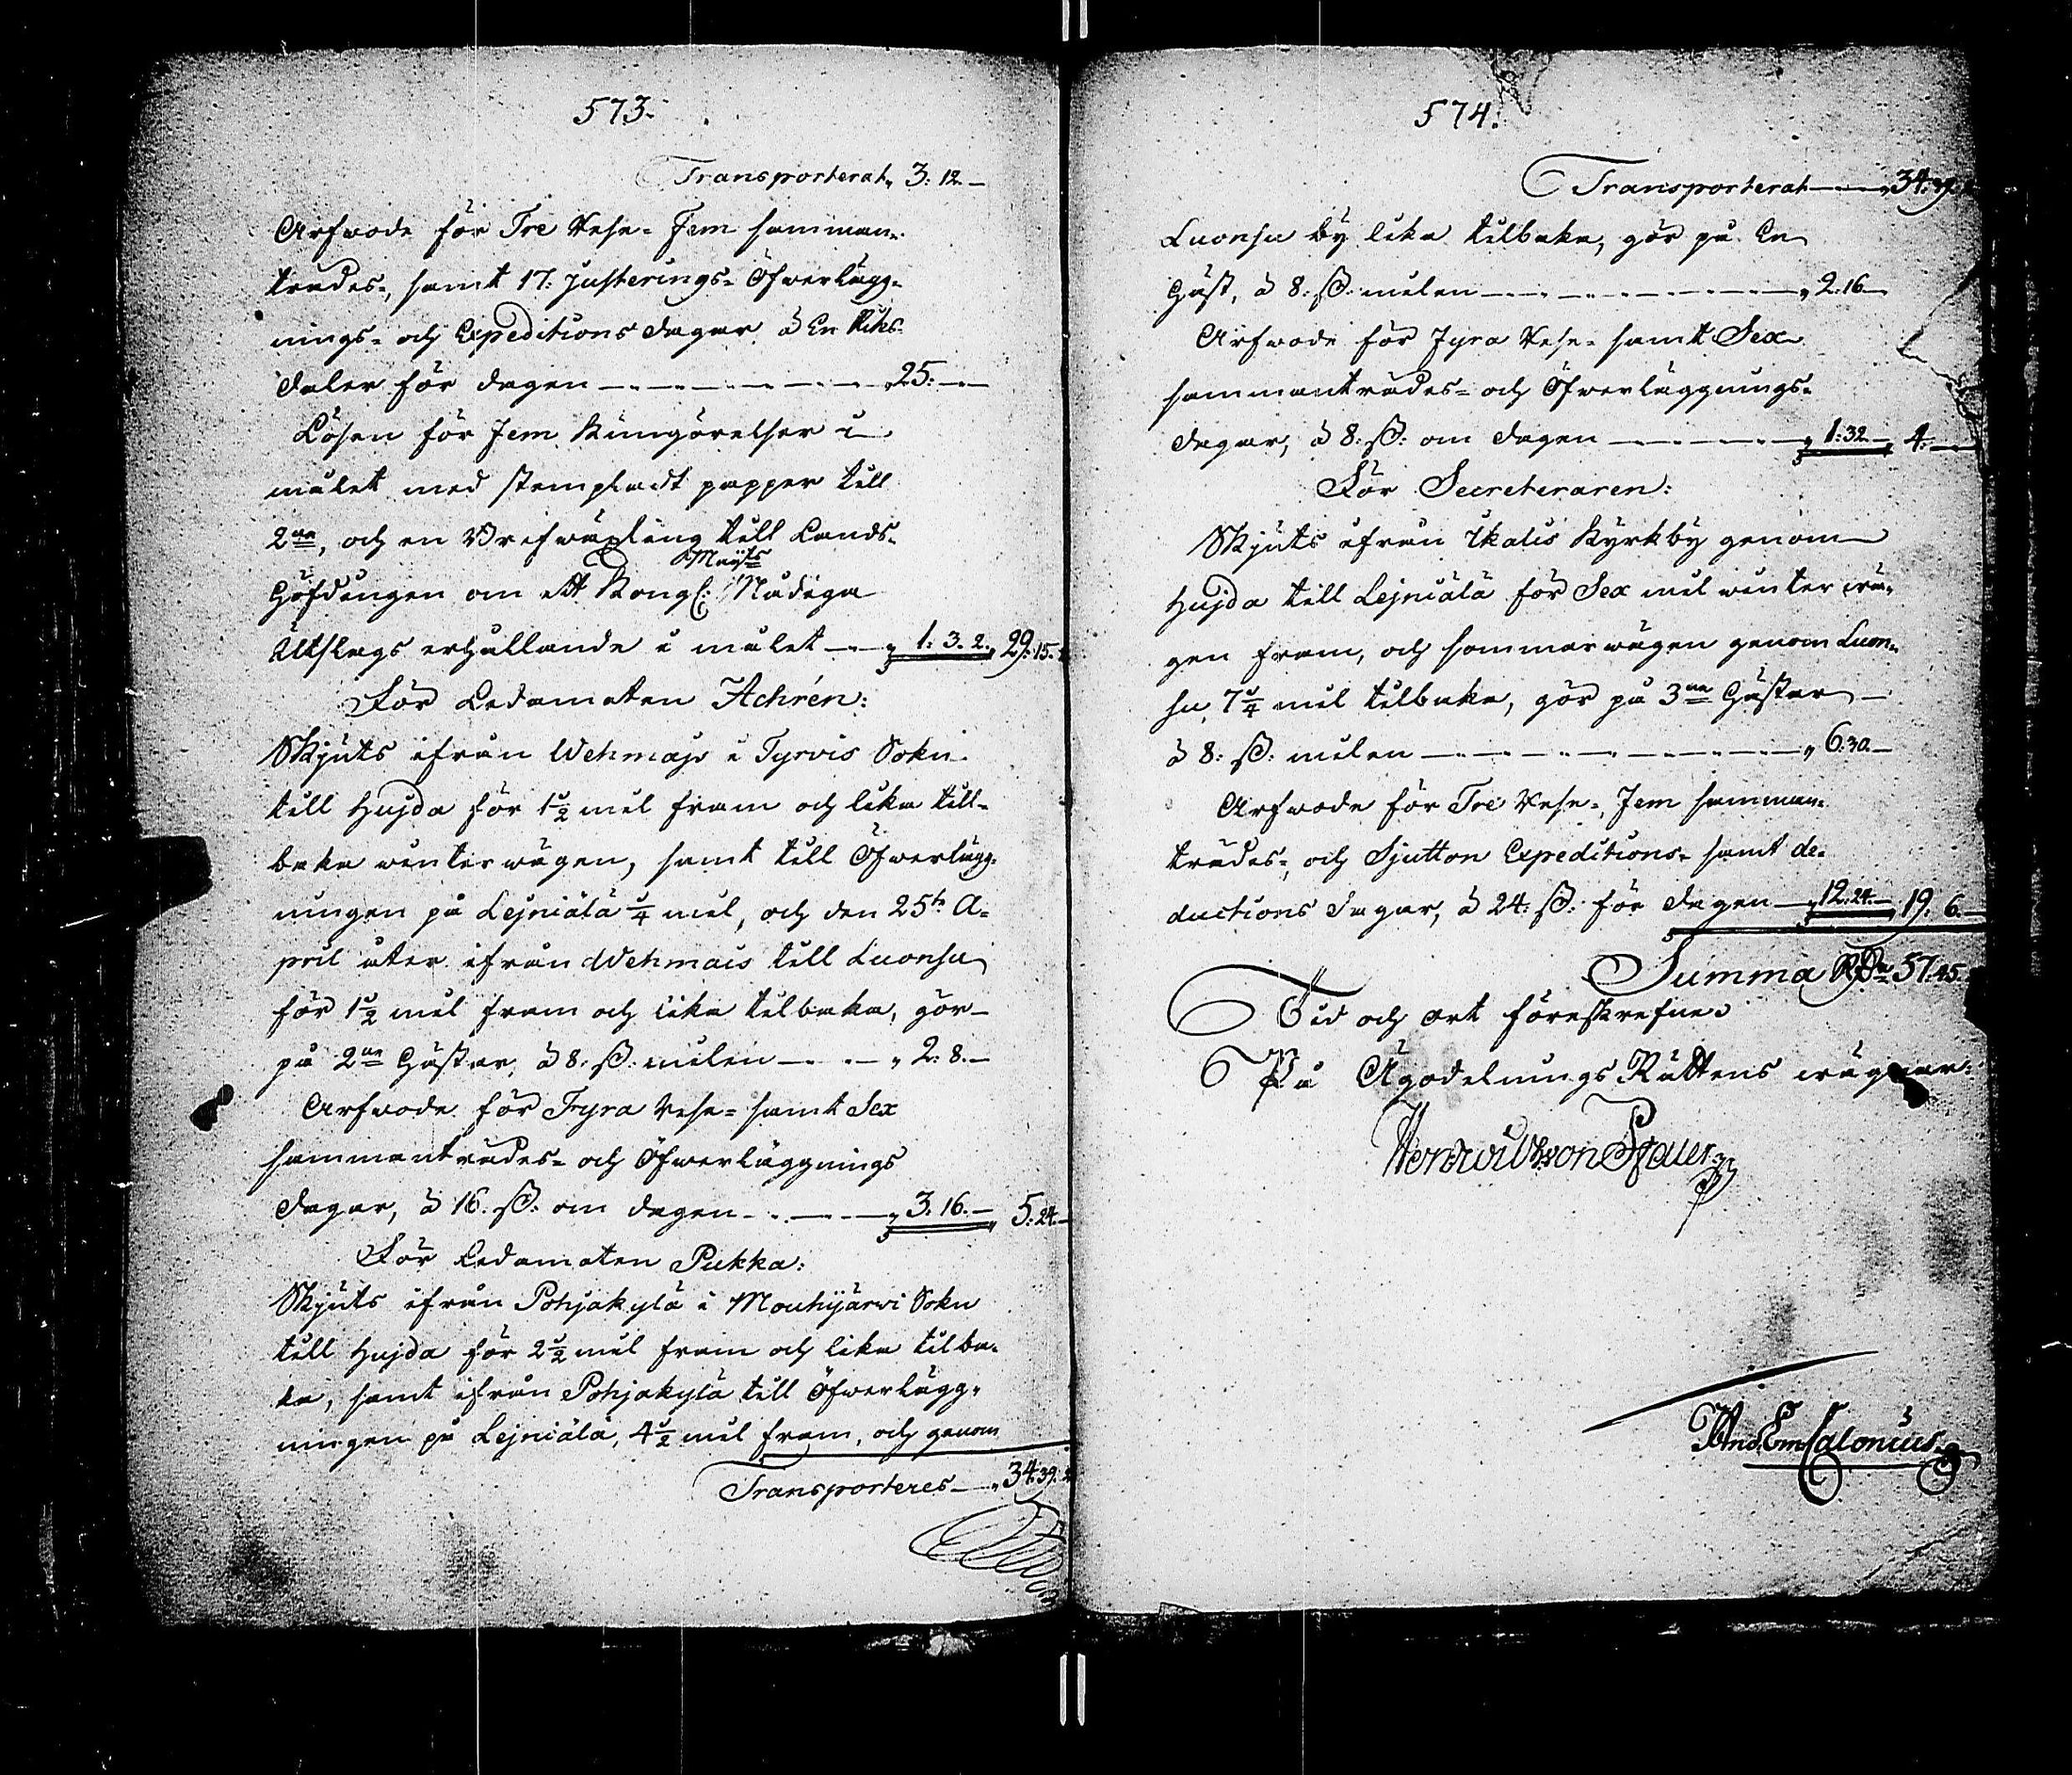 573.
Transporterat „ 3: 12. —
Arfwode för Tre Rese- Fem samman-
trädes-, samt 17. Justerings- Öfwerlägg-
nings- och Expeditions dagar à En Riks-
daler för dagen — „ 25: —
Lösen för Fem Kungörelser i
målet med stempladt papper till
2ne, och en Brefwäxling till Lands-
Höfdingen om ett Kongl: Mayts Nådiga
Utslags erhållande i målet — „ 1: 3. 2. „ 29: 15.
För Ledamoten Achrén:
Skjuts ifrån Wehmajs i Tyrvis Sokn
till Hujda för 1 1/2 mil fram och lika till-
baka winterwägen, samt till Öfwerlägg-
ningen på Lejniälä 1/4 mil, och den 25te A-
pril åter ifrån Wehmais till Luonsu
för 1 1/2 mil fram och lika tilbaka, gör
på 2ne Hästar, à 8: ß: milen — „ 2: 8. —
Arfwode för Fyra Rese- samt Sex
sammanträdes- och Öfwerläggnings
dagar, à 16. ß: om dagen — „ 3. 16. — „ 5: 24. —
För Ledamoten Pukka:
Skjuts ifrån Pohjakylä i Mouhijärwi Sokn
till Hujda för 2 1/2 mil fram och lika tilba-
ka, samt ifrån Pohjakylä till Öfwerlägg-
ningen på Lejniälä, 4 1/2 mil fram, och genom
Transporteres — „ 34: 39.
574.
Transporterat — „ 34: 39.
Luonsu by lika tilbaka, gör på En
Häst, à 8: ß: milen — „ 2: 16 —
Arfwode för Fyra Rese- samt Sex
sammanträdes- och Öfwerläggnings-
dagar, à 8: ß: om dagen — „ 1: 32 — „ 4: —
För Secreteraren:
Skjuts ifrån Ikalis Kyrkby genom
Hujda till Lejniälä för Sex mil winter wä-
gen fram, och sommarwägen genom Luon-
su, 7 1/4 mil tilbaka, gör på 3ne Hästar
à 8: ß: milen — „ 6: 30. —
Arfwode för Tre Rese-, Fem samman-
trädes-, och Sjutton Expeditions- samt de-
ductions dagar, à 24: ß: för dagen — „ 12: 24. — „ 19: 6. —
Summa RDr 57: 45.
Tid och ort föreskrefne
På Ägodelnings Rättens wägnar:
And: Em: Calonius